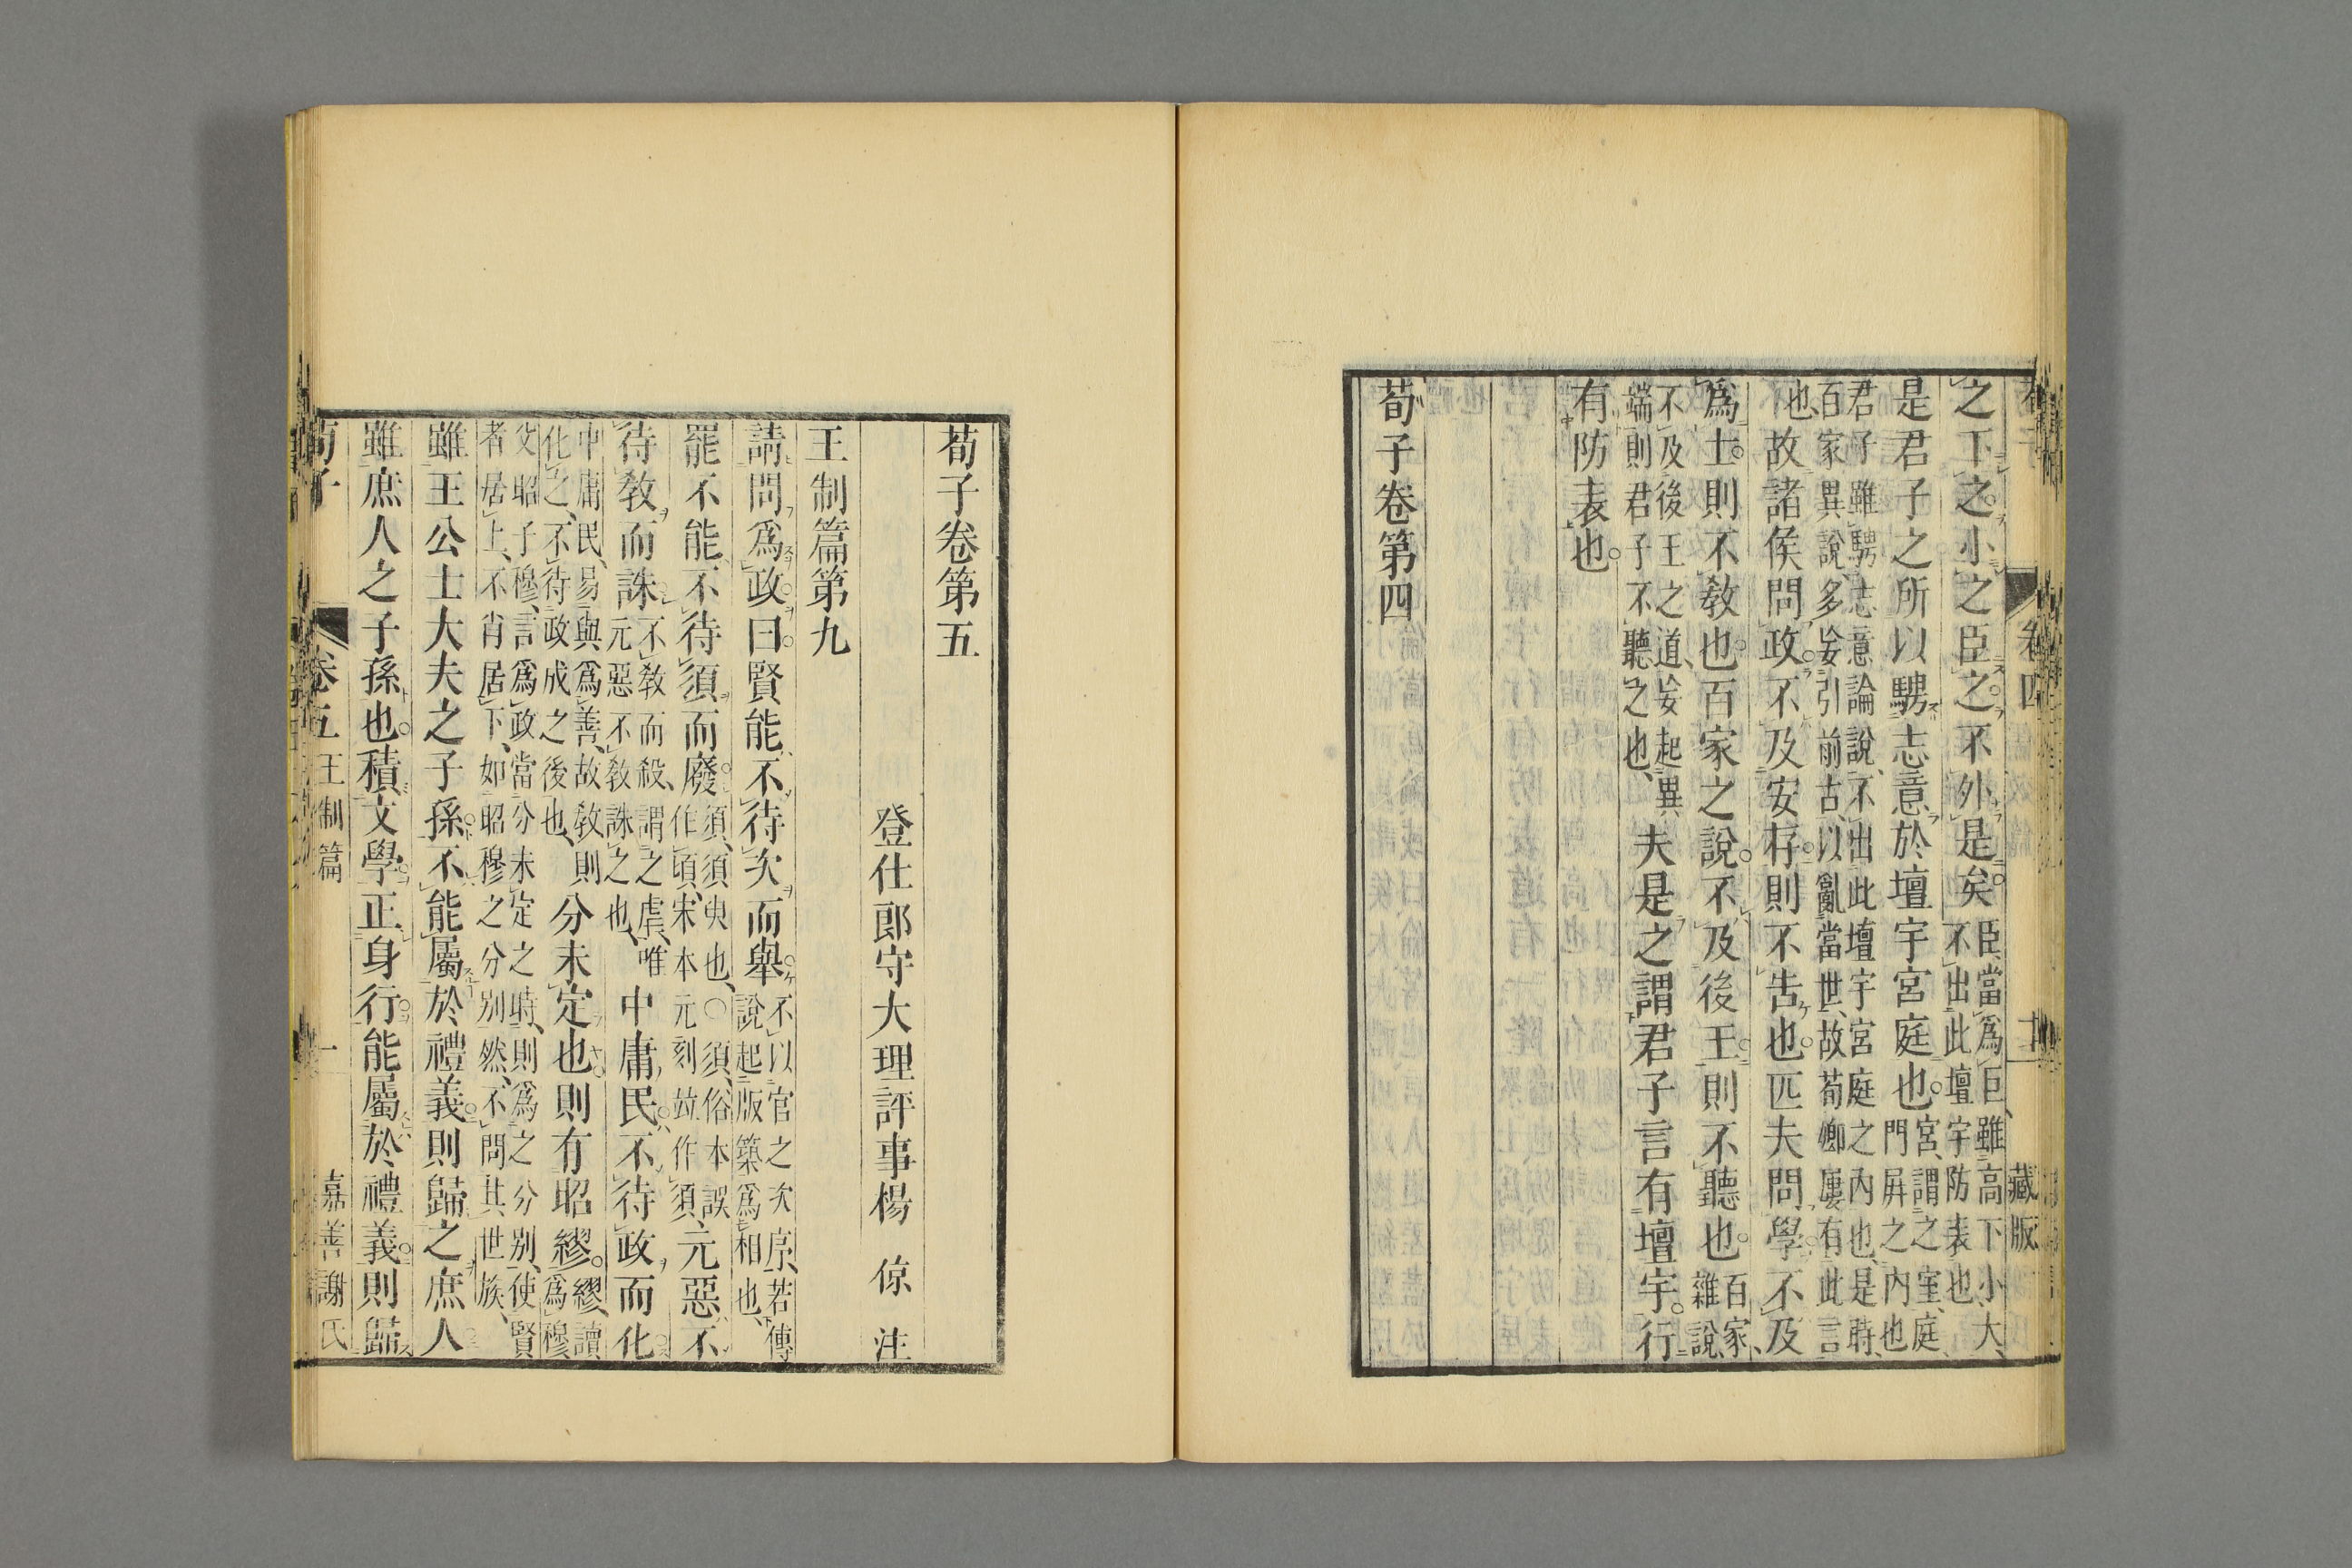 之下之小之臣之不外是矣臣當爲巨雖高下小大不出此壇宇防表也
是君子之所以騁志意於壇宇宮庭也宮謂之室庭門屏之內也
君子雖騁志意論說不出此壇宇宮庭之內也是時百家異說多妄引前古以亂當世故荀卿屢有此言
也故諸侯問政不及安存則不告也匹夫問學不及
爲士則不教也百家之說不及後王則不聽也百家雜說
不及後王之道妄起異端則君子不聽之也夫是之謂君子言有壇宇行
有防表也
荀子卷第四
卷四
藏版
荀子卷第五
登仕郎守大理評事楊 倞 注
王制篇第九
請問爲政曰賢能不待次而舉不以官之次序若傅說起版築爲相也
罷不能不待須而廢須須臾也○須俗本誤作頃宋本元刻竝作須元惡不
待敎而誅不敎而殺謂之虐唯元惡不敎誅之也中庸民不待政而化
中庸民易與爲善故敎則化之不待政成之後也分未定也則有昭繆繆讀爲穆
父昭子穆言爲政當分未定之時則爲之分别使賢者居上不肖居下如昭穆之分别然不問其世族
雖王公士大夫之子孫不能屬於禮義則歸之庶人
雖庶人之子孫也積文學正身行能屬於禮義則歸
荀子
卷五 王制篇
一
嘉善謝氏